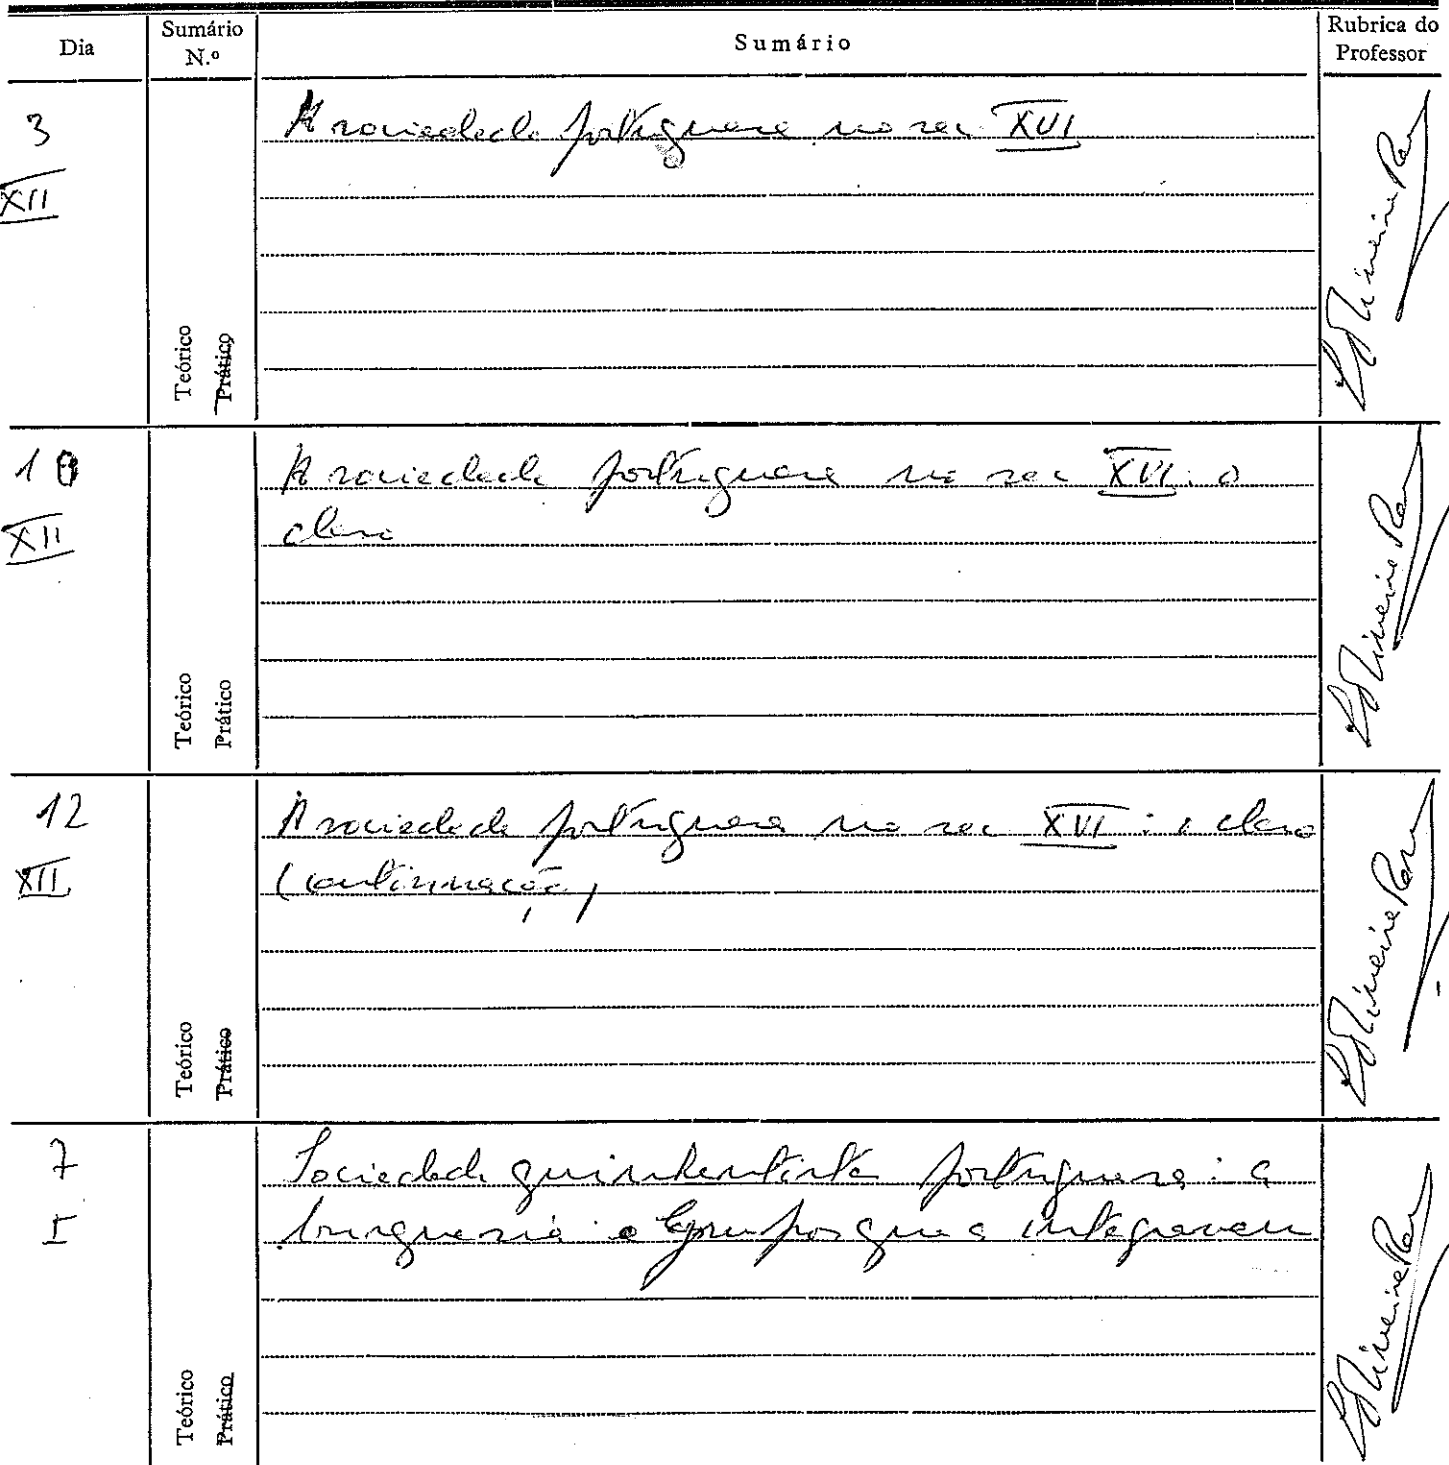 Dia
Sumário
N.º
Sumário
Rubrica do
Professor
3
XII
A sociedade portuguesa no sec XVI
Teórico
Prático
10
XII
A sociedade portuguesa no sec XVI: o
clero
Teórico
Prático
12
XII
A sociedade portuguesa no sec XVI: o clero
(continuação)
Teórico
Prático
7
I
Sociedade quinhentista portuguesa: a
burguesia e grupos que a integravam
Teórico
Prático